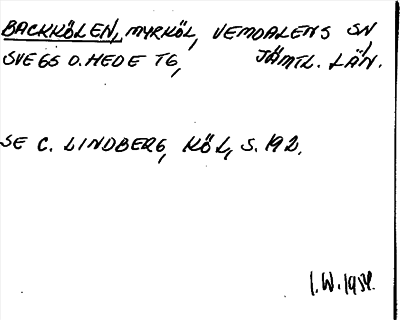 BACKKÖLEN, MYRKÖL, VEMDALENS SN,
SVEGS O. HEDE TG, JÄMTL. LÄN.
SE C. LINDBERG, KÖL, S. 192.
I.W. 1954.